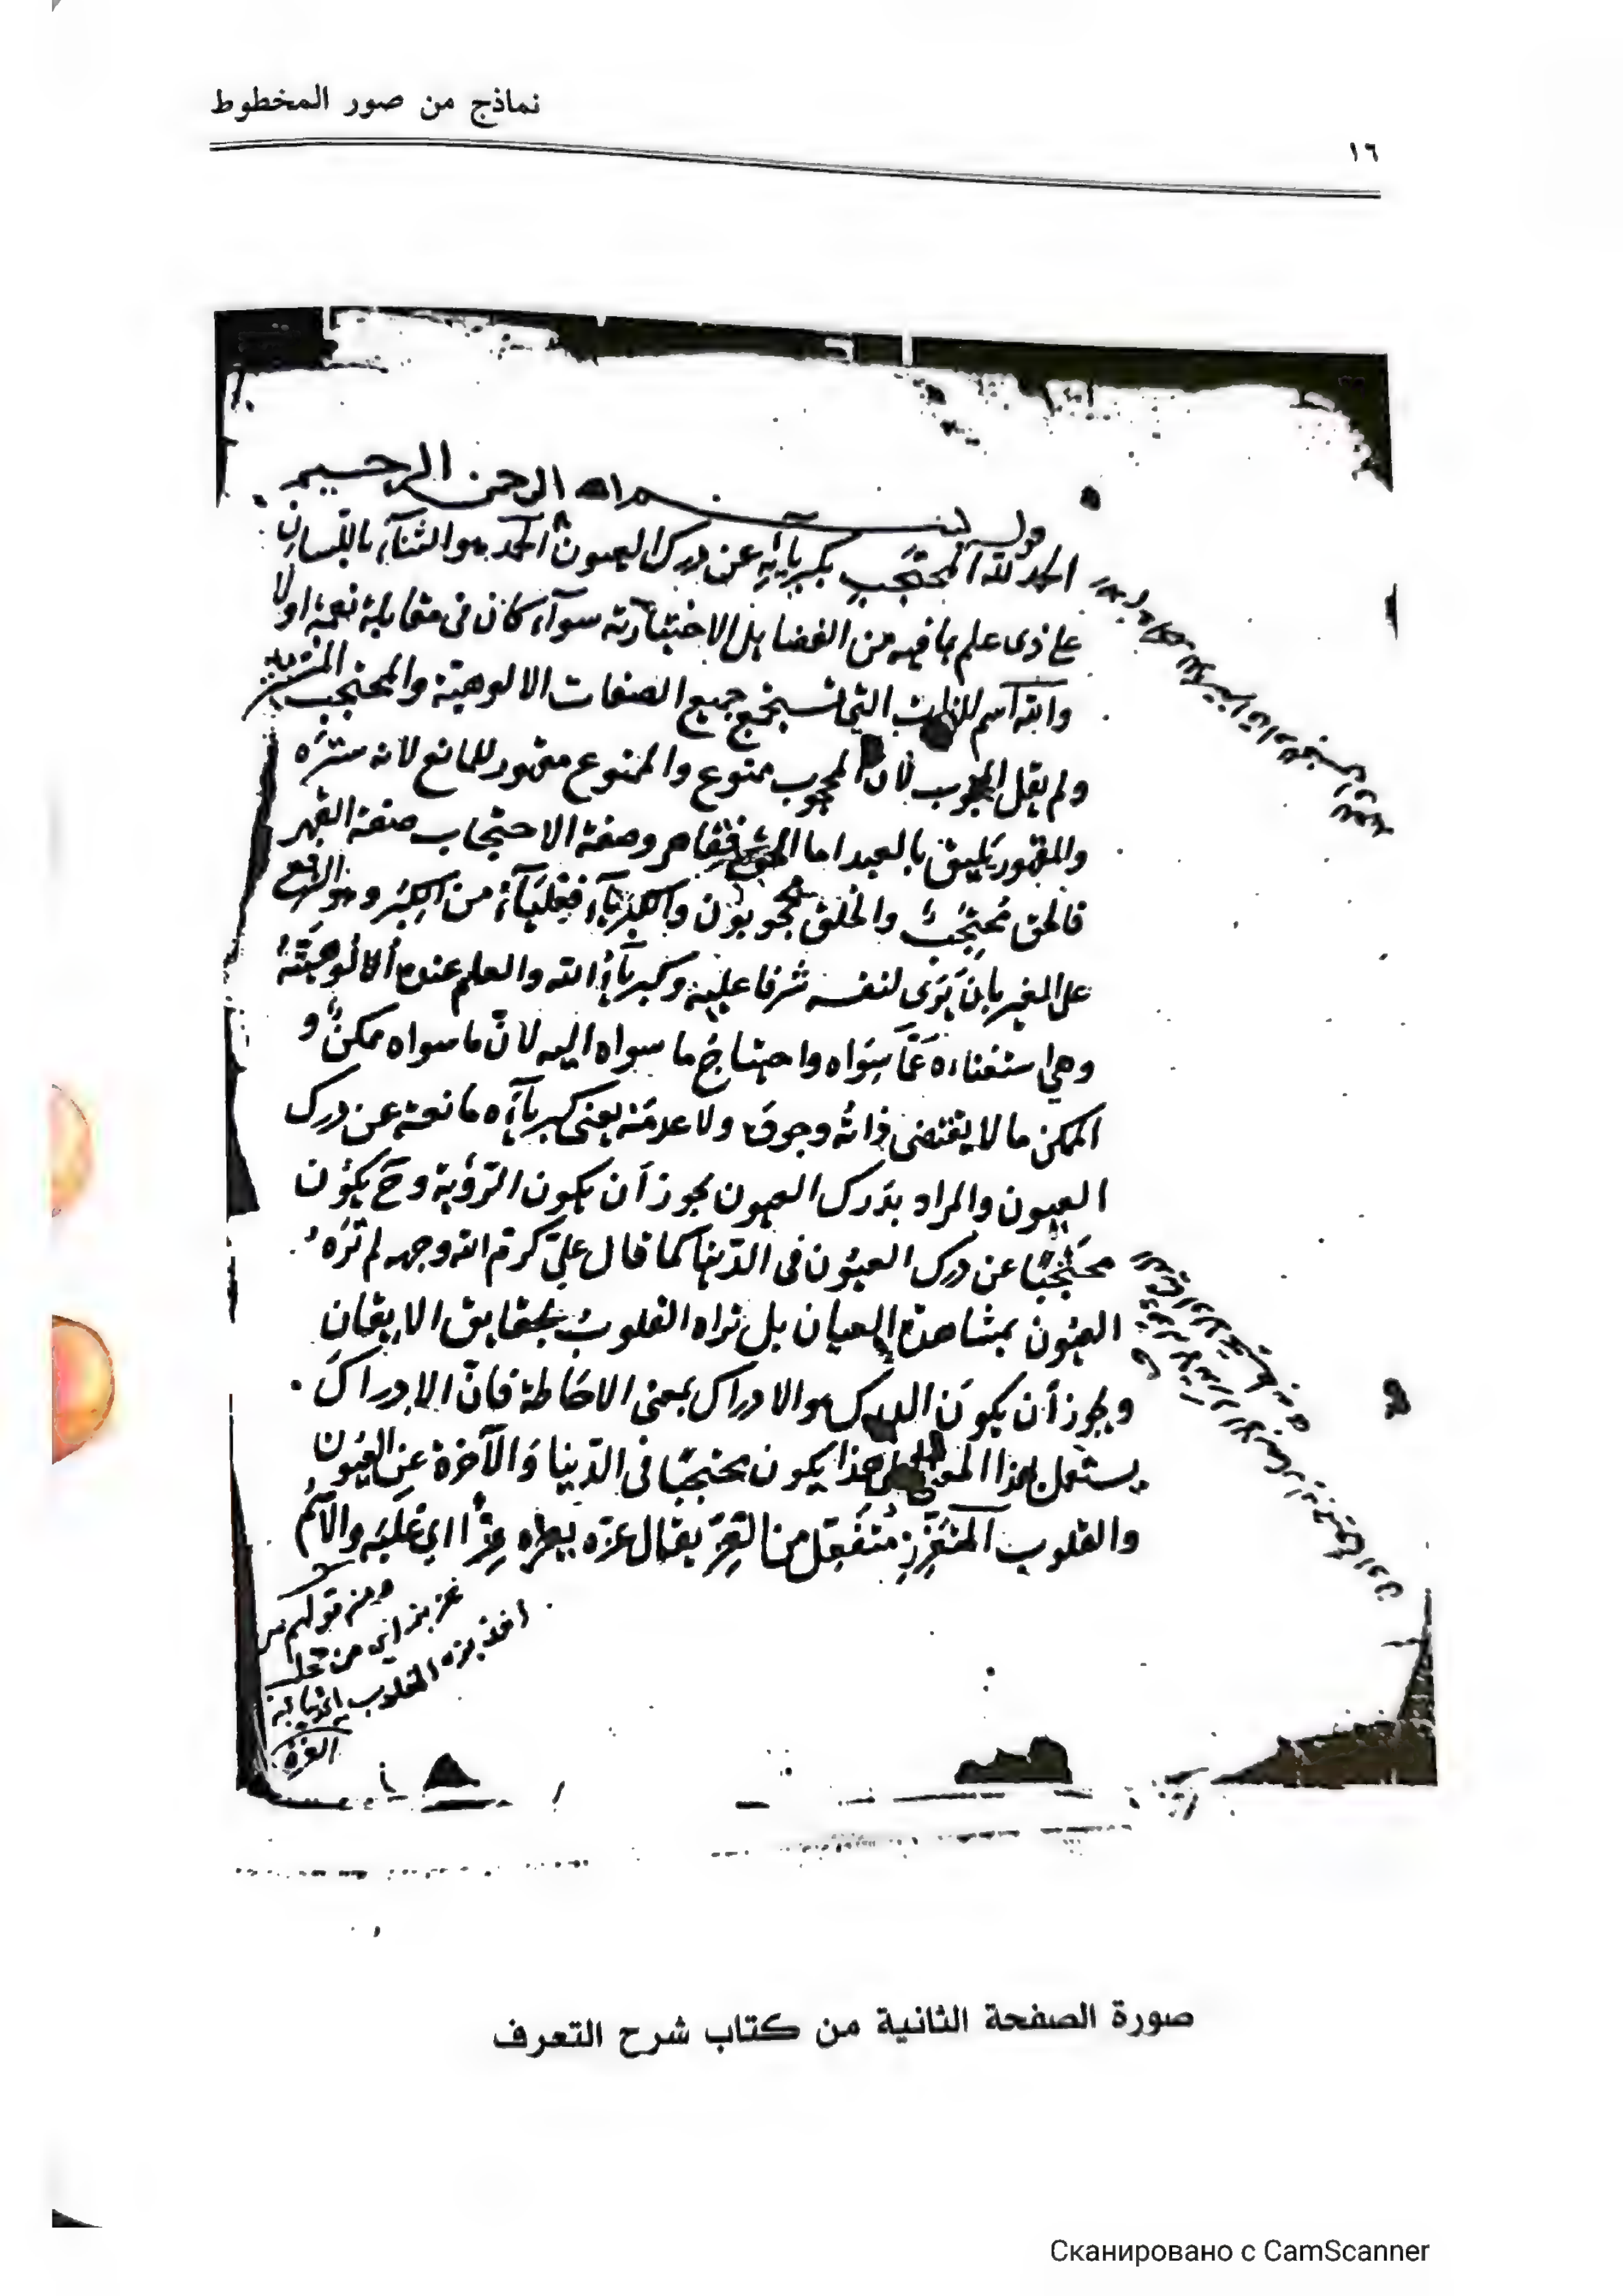 نماذج من صور المخطوط
١٦
بسم الله الرحمن الرحيم
الحمد لله المحتجب بكبريائه عن درك العيون الحمد هو الثناء باللسان
على ذى علم بما فيه من الفضايل الاختيارية سوآء كان فى مقابلة نعمة اولا
والله اسم للذات التى تستجمع جميع الصفات الالوهية والمحتجب
ولم يقل المحجوب لان المحجوب ممنوع والممنوع مقهور للمانع لانه ستره
والمقهور يليق بالعبد اما الحق فقاهر وصفة الاحتجاب صفة القهر
فالحق محتجب والخلق محجوبون والكبرياء فعلياء من الكبر وهو الرفع
على الغير بان يرى لنفسه شرفا عليه وكبرياء الله والعلم عنده ألالوهيته
وهى استغناءه عمّا سواه واحتياج ما سواه اليه لانّ ما سواه ممكن و
الممكن ما لا يقتضى ذاته وجوده ولا عدمه يعنى كبريآءه مانعة عن درك
العيون والمراد بدرك العيون يجوز أن يكون الرؤية وح يكون
محتجبا عن درك العيون فى الدّنيا كما قال علىّ كرم الله وجهه لم تره
العيون بمشاهدة العيان بل تراه القلوب بحقايق الايقان
ويجوز أن يكون الدرك هو الادراك بمعنى الاحاطة فانّ الادراك
يستعمل بهذا المعنى هذا يكون محتجبا فى الدّنيا والآخرة عن العيون
والقلوب المتعزز متفعل من التعزز يقال عزه يعزه عزّا اى غلبه والاسم
ومن قولهم من
عز بز اى من غلب
اخذ بزه القلوب
العزة
صورة الصفحة الثانية من كتاب شرح التعرف
Сканировано с CamScanner